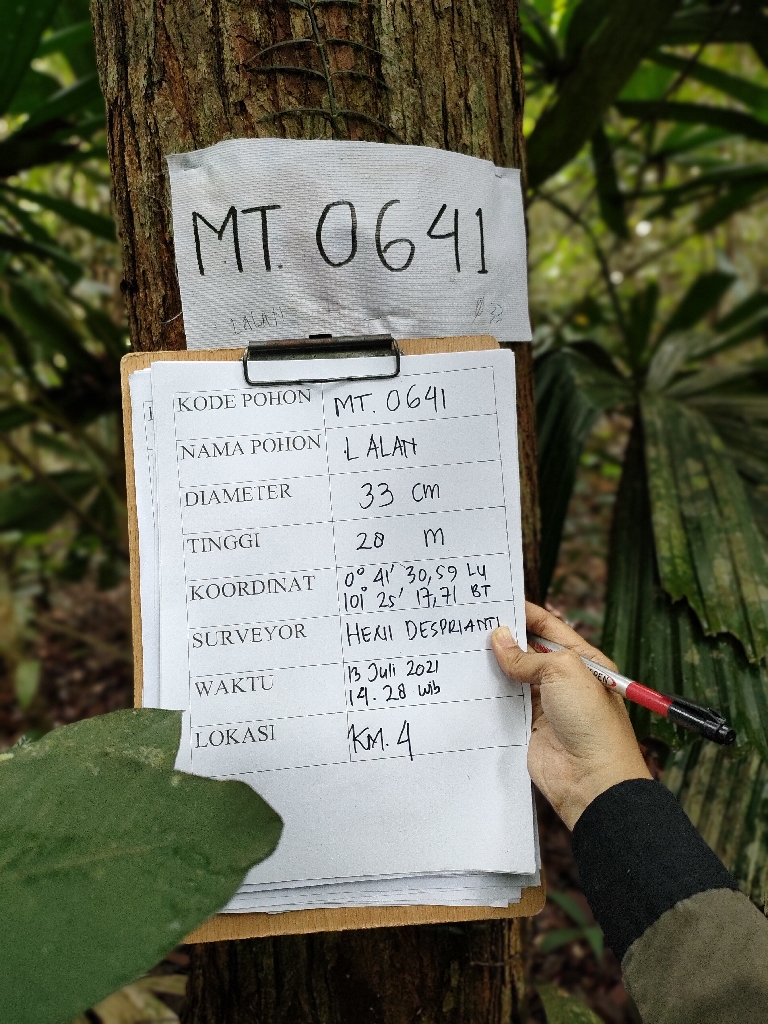 MT. 0641
LALAN
Ø 33
KODE POHON MT. 0641
NAMA POHON LALAN
DIAMETER 33 cm
TINGGI 28 m
KOORDINAT 0° 41' 30,59 LU
101° 25' 17,71 BT
SURVEYOR HENI DESPRIANTI
WAKTU 13 Juli 2021
14.28 wib
LOKASI KM. 4